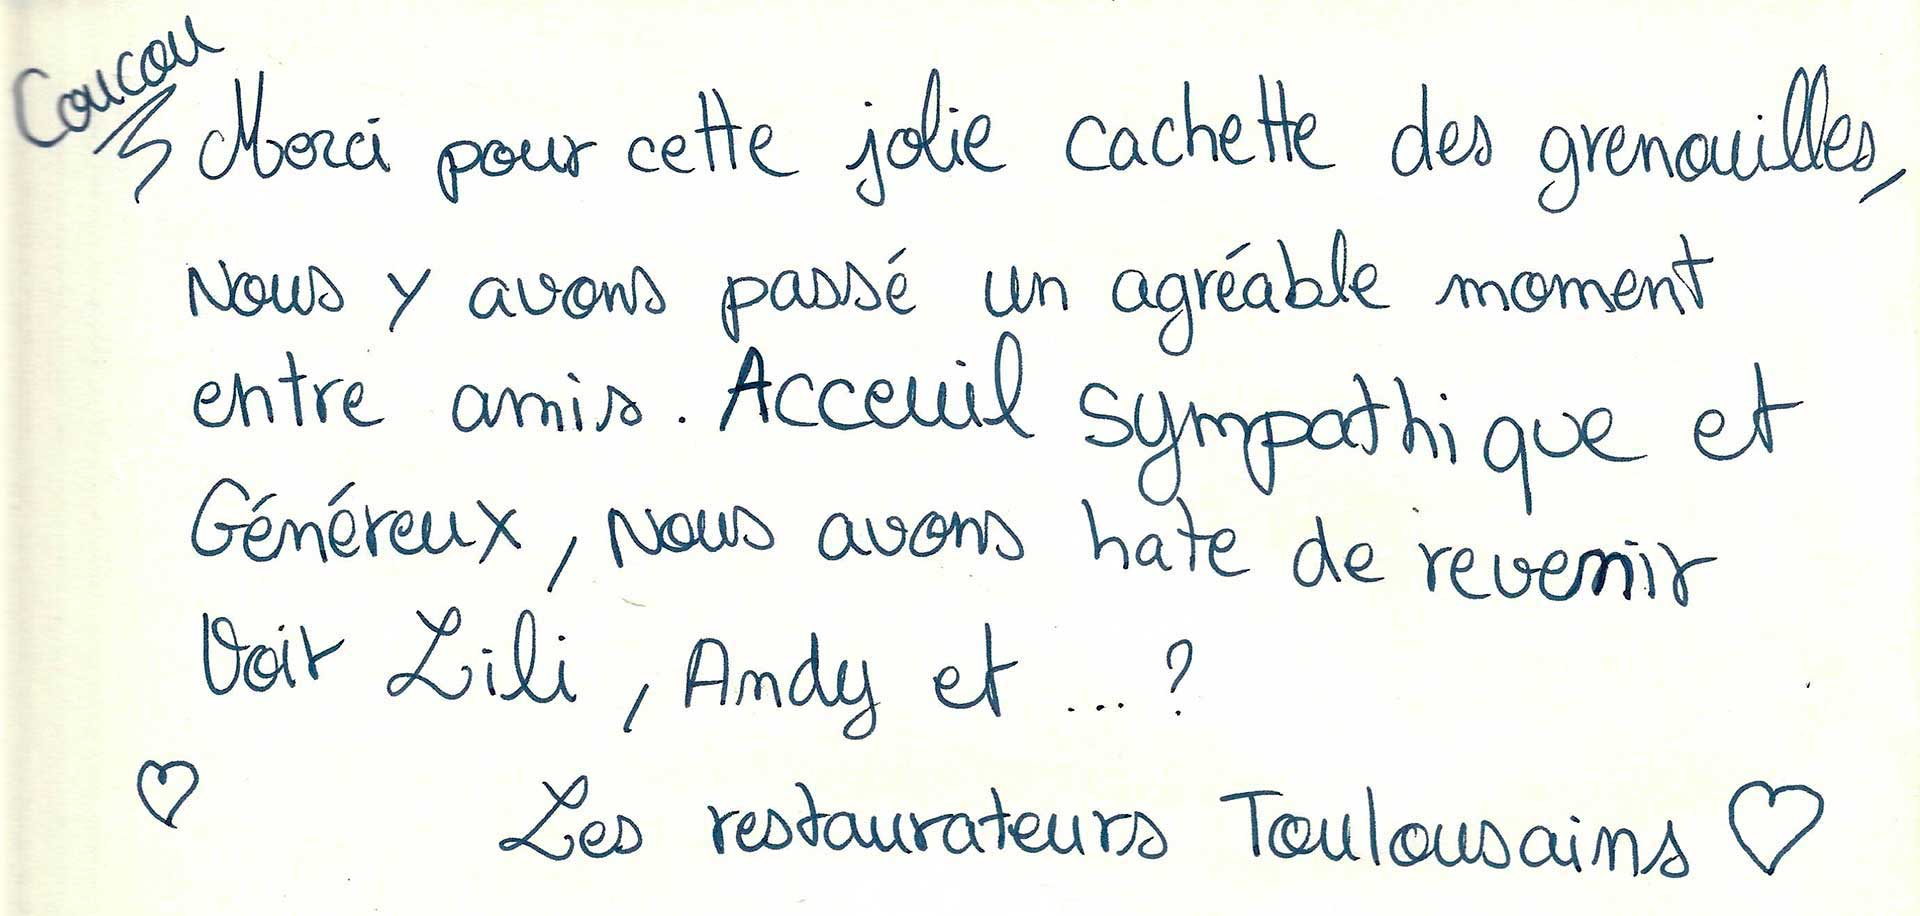 Coucou
Merci pour cette jolie cachette des grenouilles,
Nous y avons passé un agréable moment
entre amis. Acceuil sympathique et
Généreux, Nous avons hate de revenir
Voir Lili, Andy et ... ?
Les restaurateurs Toulousains